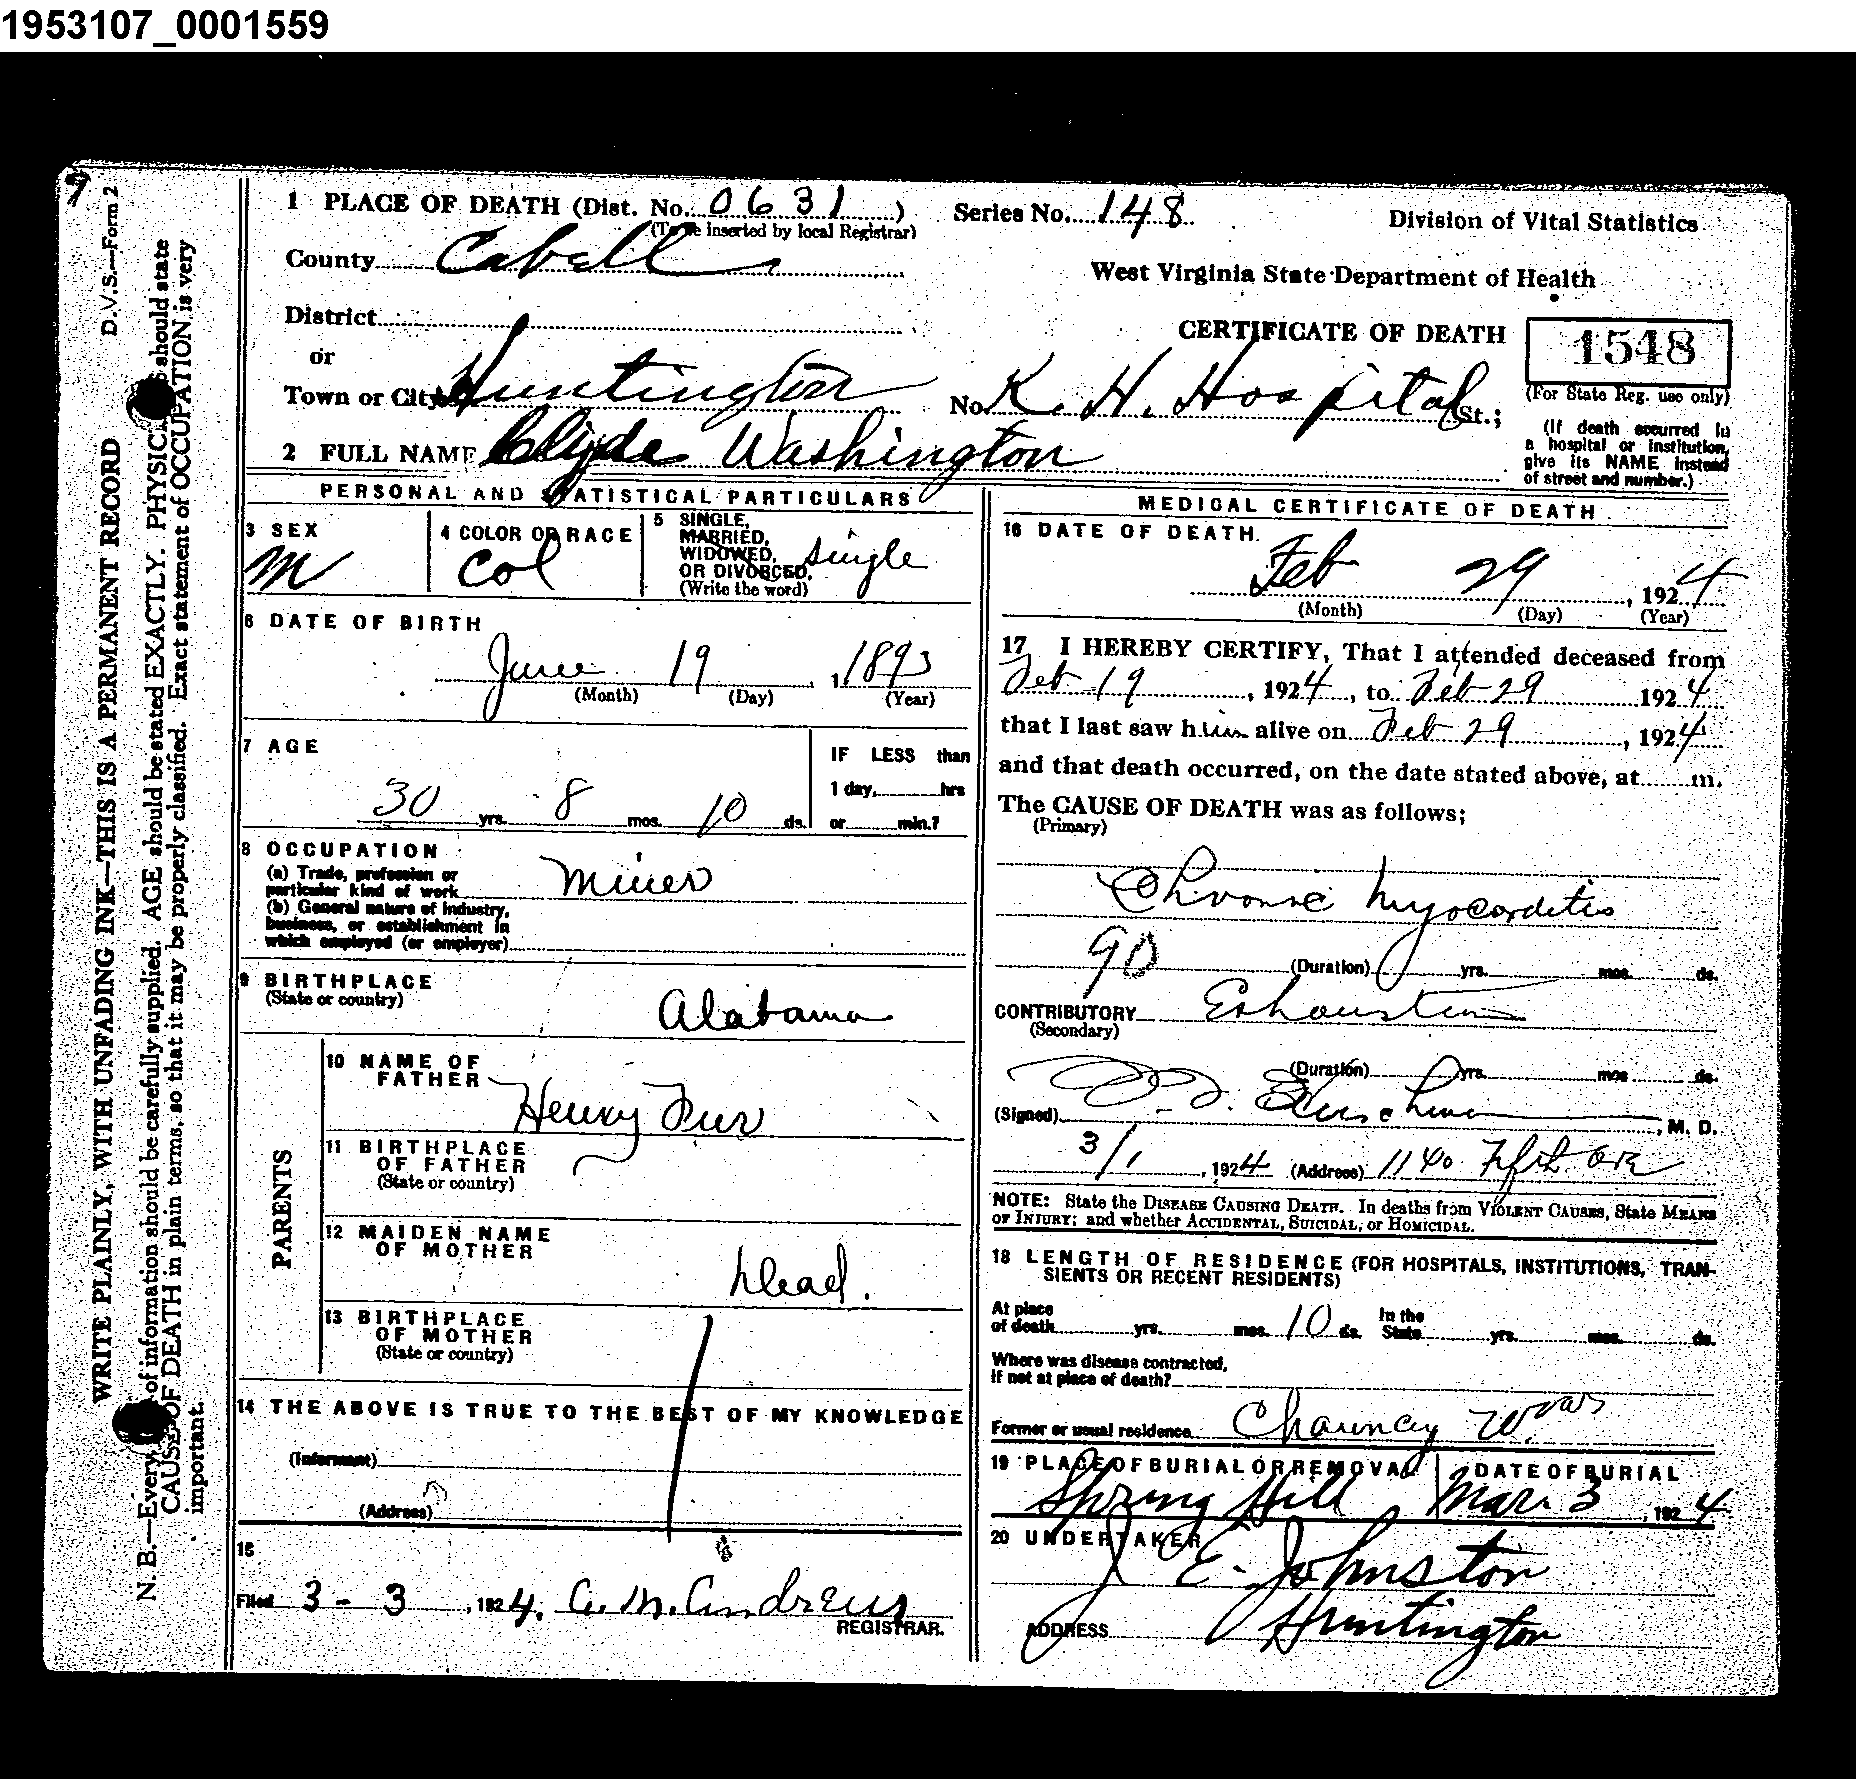 1953107_0001559
7
D.V.S.—Form 2
WRITE PLAINLY, WITH UNFADING INK—THIS IS A PERMANENT RECORD
N. B.—Every of information should be carefully supplied. AGE should be stated EXACTLY. PHYSICI should state
CAUSE OF DEATH in plain terms, so that it may be properly classified. Exact statement of OCCUPATION is very
important.
1 PLACE OF DEATH (Dist. No. 0631 )
(To be inserted by local Registrar)
Series No. 148
Division of Vital Statistics
County Cabell
West Virginia State Department of Health
District
CERTIFICATE OF DEATH
1548
(For State Reg. use only)
or
Town or City Huntington No. K. H. Hospital St.;
(If death occurred in
a hospital or institution,
give its NAME instead
of street and number.)
2 FULL NAME Clyde Washington
PERSONAL AND STATISTICAL PARTICULARS
3 SEX
M
4 COLOR OR RACE
Col
5 SINGLE,
MARRIED,
WIDOWED,
OR DIVORCED,
(Write the word)
single
6 DATE OF BIRTH
June 19, 1893
(Month) (Day) (Year)
7 AGE
30 yrs. 8 mos. 10 ds.
IF LESS than
1 day, hrs
or min.?
8 OCCUPATION
(a) Trade, profession or
particular kind of work
Miner
(b) General nature of industry,
business, or establishment in
which employed (or employer)
9 BIRTHPLACE
(State or country)
Alabama
PARENTS
10 NAME OF
FATHER
Henry
11 BIRTHPLACE
OF FATHER
(State or country)
12 MAIDEN NAME
OF MOTHER
Dead.
13 BIRTHPLACE
OF MOTHER
(State or country)
14 THE ABOVE IS TRUE TO THE BEST OF MY KNOWLEDGE
(Informant)
(Address)
15
Filed 3-3, 1924. C. M. Andrews
REGISTRAR.
MEDICAL CERTIFICATE OF DEATH
16 DATE OF DEATH.
Feb 29, 1924
(Month) (Day) (Year)
17 I HEREBY CERTIFY, That I attended deceased from
Feb 19, 1924, to Feb 29 1924
that I last saw him alive on Feb 29, 1924
and that death occurred, on the date stated above, at m.
The CAUSE OF DEATH was as follows;
(Primary)
Chronic Myocarditis
90
(Duration) yrs. mos. ds.
CONTRIBUTORY Exhaustion
(Secondary)
(Duration) yrs. mos. ds.
(Signed) , M. D.
3/1, 1924 (Address) 1140 Fifth Ave
NOTE: State the DISEASE CAUSING DEATH. In deaths from VIOLENT CAUSES, State MEANS
OF INJURY; and whether ACCIDENTAL, SUICIDAL, or HOMICIDAL.
18 LENGTH OF RESIDENCE (FOR HOSPITALS, INSTITUTIONS, TRAN-
SIENTS OR RECENT RESIDENTS)
At place
of death yrs. mos. 10 ds. In the
State yrs. mos. ds.
Where was disease contracted,
if not at place of death?
Former or usual residence Chauncey W. Va
19 PLACE OF BURIAL OR REMOVAL
Spring Hill
DATE OF BURIAL
Mar. 3, 1924
20 UNDERTAKER
J. E. Johnston
ADDRESS
Huntington